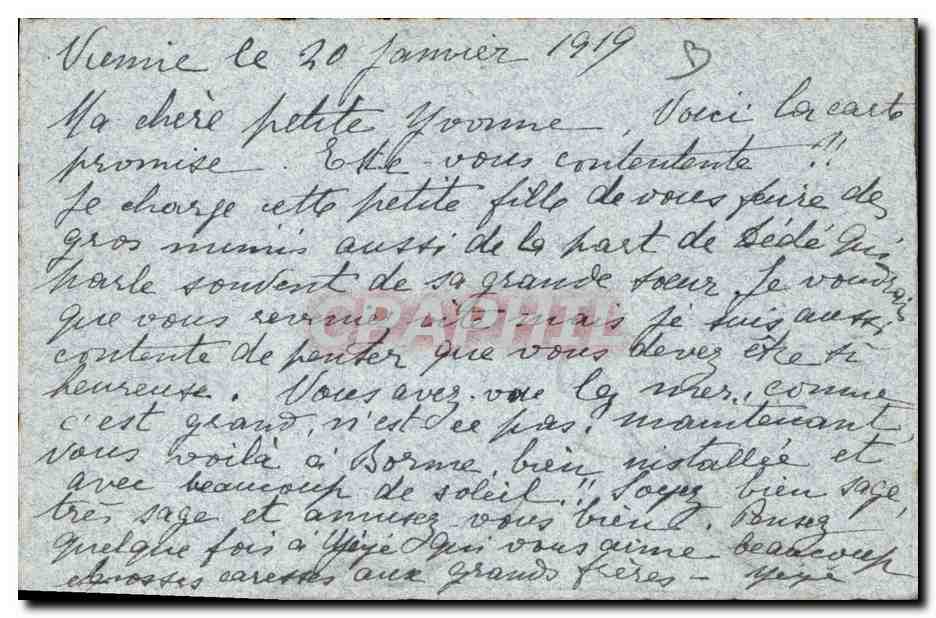 Vienne le 20 Janvier 1919 B
Ma chère petite Yvonne, Voici la carte
promise. Etes-vous contentente !!
Je charge cette petite fille de vous faire des
gros mimis aussi de la part de Dédé qui
parle souvent de sa grande sœur. Je voudrais
que vous reveniez vite mais je suis aussi
contente de penser que vous devez être si
heureuse. Vous avez vue la mer, comme
c'est grand, n'est ce pas. maintenant,
vous voilà à Borme, bien installée et
avec beaucoup de soleil !! Soyez bien sage,
très sage et amusez-vous bien. Pensez
quelque fois à Yéyé qui vous aime beaucoup
Grosses caresses aux grands frères - Yéyé
GRAPHIL